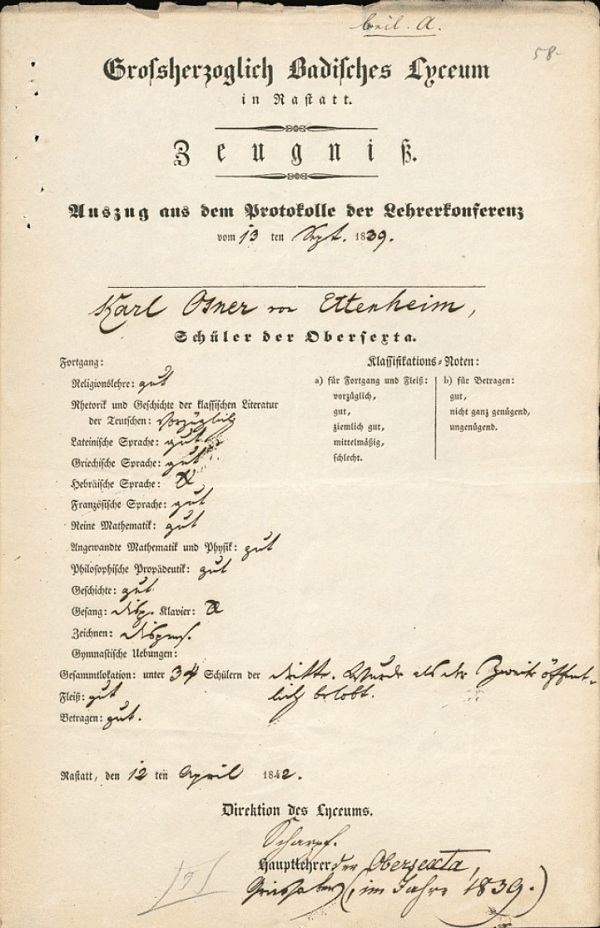 beil. A.
58-
Großherzoglich Badisches Lyceum
in Rastatt.
Zeugniß.
Auszug aus dem Protokolle der Lehrerkonferenz
vom 13 ten Sept. 1839.
Karl Osner von Ettenheim,
Schüler der Obersexta.
Fortgang:
Religionslehre: gut
Rhetorik und Geschichte der klassischen Literatur
der Teutschen: vorzüglich
Lateinische Sprache: gut
Griechische Sprache: gut
Hebräische Sprache:
Französische Sprache: gut
Reine Mathematik: gut
Angewandte Mathematik und Physik: gut
Philosophische Propädeutik: gut
Geschichte: gut
Gesang: disp. Klavier:
Zeichnen: dispens.
Gymnastische Uebungen:
Klassifikations-Noten:
a) für Fortgang und Fleiß:
vorzüglich,
gut,
ziemlich gut,
mittelmäßig,
schlecht.
b) für Betragen:
gut,
nicht ganz genügend,
ungenügend.
Gesammtlokation: unter 34 Schülern der dritte. Wurde als der Zweite öffent-
lich belobt.
Fleiß: gut
Betragen: gut.
Rastatt, den 12 ten April 1842.
Direktion des Lyceums.
Scharpf.
Hauptlehrer der Obersexta,
(im Jahre 1839.)